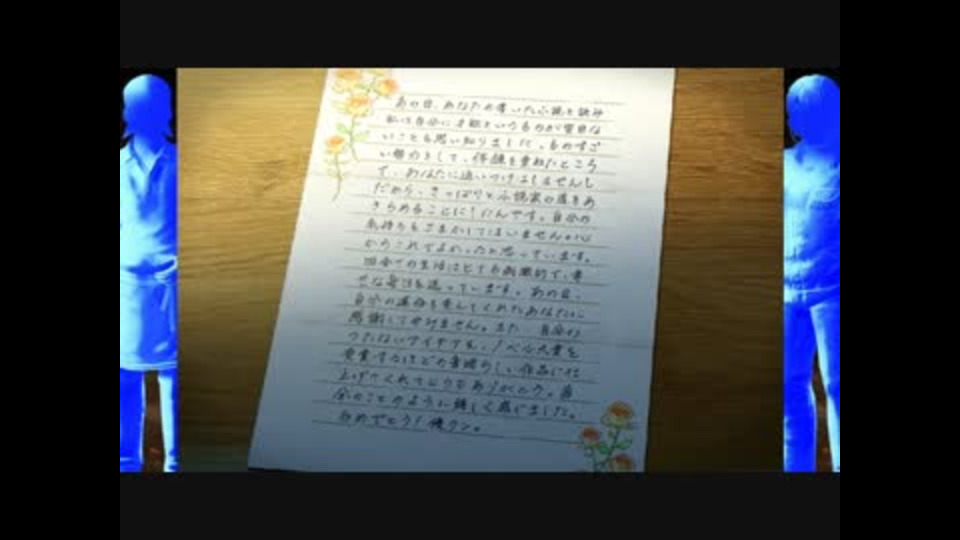 あの日、あなたの書いた小説を読み
私は自分に才能というものが皆目な
いことを思い知りました。ものすご
い努力をして、体験を重ねたところ
で、あなたに追いつけはしませんし
だから、きっぱりと小説家の道をあ
きらめることにしたんです。自分の
気持ちをごまかしてはいません。心
からこれでよかったと思っています。
田舎での生活はとても刺激的で、幸
せな毎日を送っています。あの日、
自分の運命を変えてくれたあなたに
感謝してやみません。また、自分の
つたないアイデアを、ノベル大賞を
受賞するほどの素晴らしい作品に仕
上げてくれてどうもありがとう。自
分のことのように嬉しく感じました。
おめでとう！俊クン。